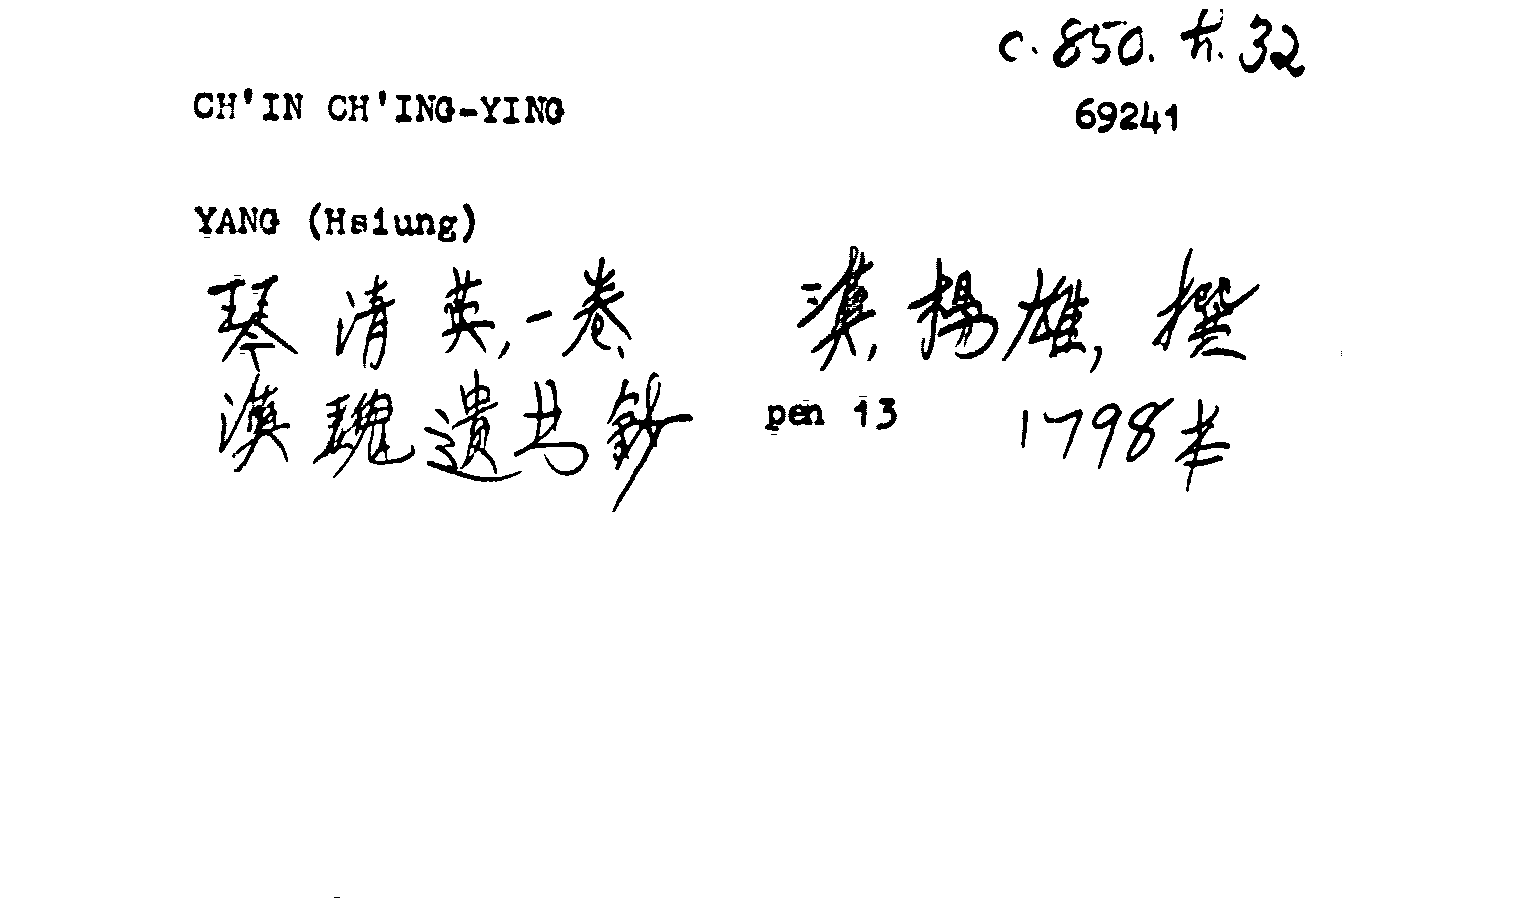 c. 850. h. 32
CH'IN CH'ING-YING
69241
YANG (Hsiung)
琴清英,一卷、 漢,楊雄,撰
漢魏遺书鈔 pen 13 1798年